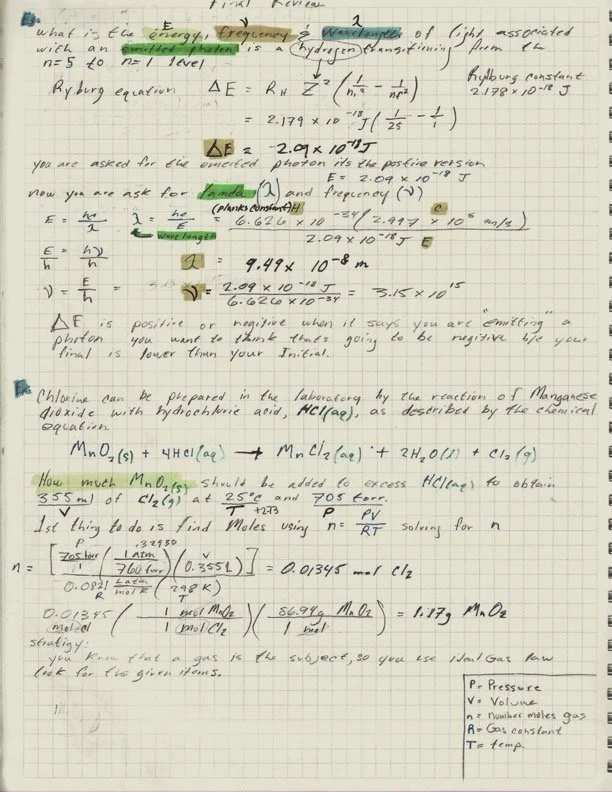 Final Review
E ν λ
what is the energy, frequency & wavelength of light associated
with an emitted photon is a hydrogen transitioning from the
n=5 to n=1 level
Rydburg constant
2.178 x 10⁻¹⁸ J
Ryburg equation ΔE = R_H Z² (1/n_i² - 1/n_f²)
= 2.179 x 10⁻¹⁸ J (1/25 - 1/1)
ΔE = -2.09 x 10⁻¹⁸ J
you are asked for the emitted photon its the postive version
E = 2.09 x 10⁻¹⁸ J
now you are ask for lamda (λ) and frequency (ν)
(planks constant) H C
E = hc/λ λ = hc/E = 6.626 x 10⁻³⁴ (2.997 x 10⁸ m/s) / 2.09 x 10⁻¹⁸ J E
wavelength
E/h = hν/h λ = 9.49 x 10⁻⁸ m
ν = E/h = ν = 2.09 x 10⁻¹⁸ J / 6.626 x 10⁻³⁴ = 3.15 x 10¹⁵
ΔE is positive or negitive when it says you are "emitting" a
photon you want to think thats going to be negitive b/c your
final is lower than your Initial.
Chlorine can be prepared in the laboratory by the reaction of Manganese
dioxide with hydrochloric acid, HCl(aq), as described by the chemical
equation
MnO₂(s) + 4HCl(aq) → MnCl₂(aq) + 2H₂O(l) + Cl₂(g)
How much MnO₂(s) should be added to excess HCl(aq) to obtain
355 ml of Cl₂(g) at 25°C and 705 torr.
V T +273 P
1st thing to do is find Moles using n = PV/RT solving for n
P V
n = [705 torr/1 (1 atm/760 torr) (0.355 l)] / 0.0821 L atm/mol K (298 K) = 0.01345 mol Cl₂
R T
0.01345 mol cl (1 mol MnO₂ / 1 mol Cl₂) (86.94g MnO₂ / 1 mol) = 1.17g MnO₂
stratigy:
you know that a gas is the subject, so you use ideal Gas law
look for two given items.
P = Pressure
V = Volume
n = number moles gas
R = Gas constant
T = temp.